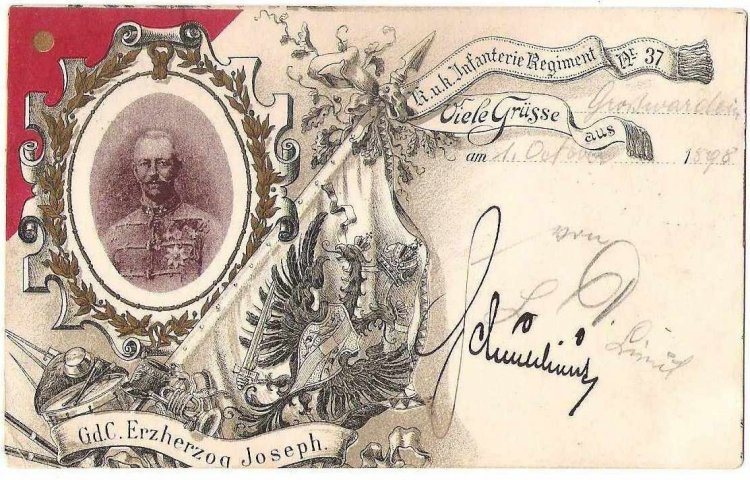 K.u.k. Infanterie Regiment Nr. 37
Viele Grüsse aus Grosswardein
am 1. October 1898
von
G.d.C. Erzherzog Joseph.